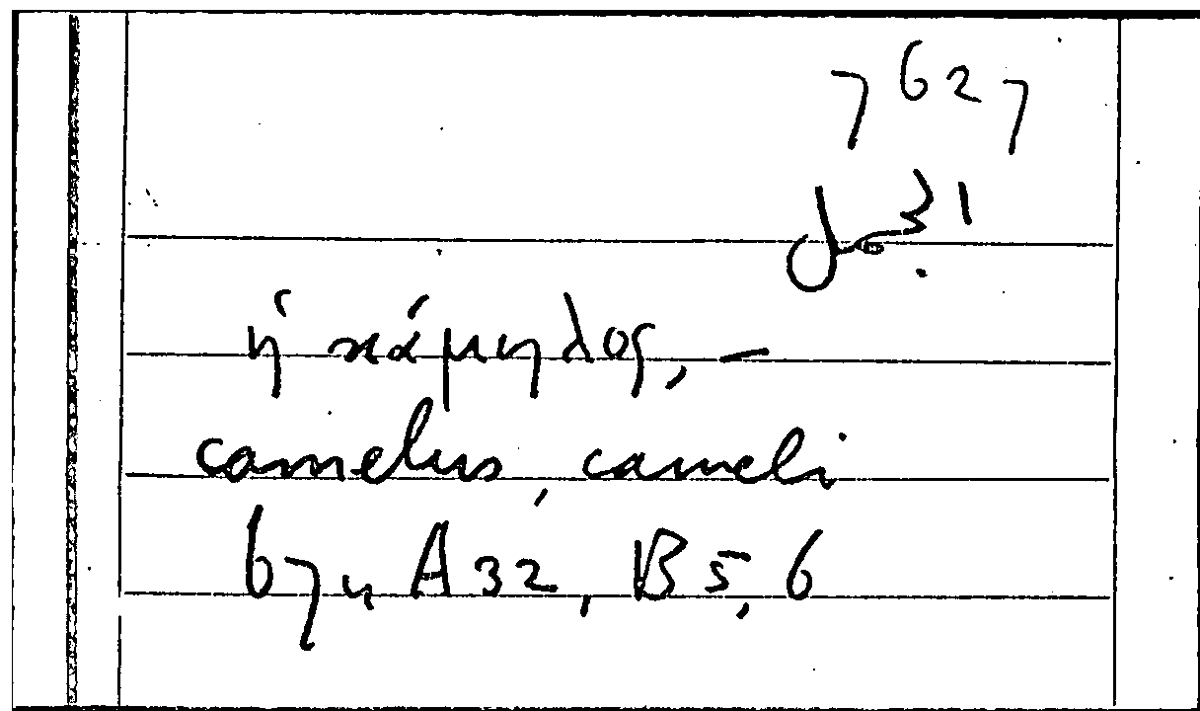 7627
اجمل
ἡ κάμηλος, –
camelus, cameli
674 A32, B5,6